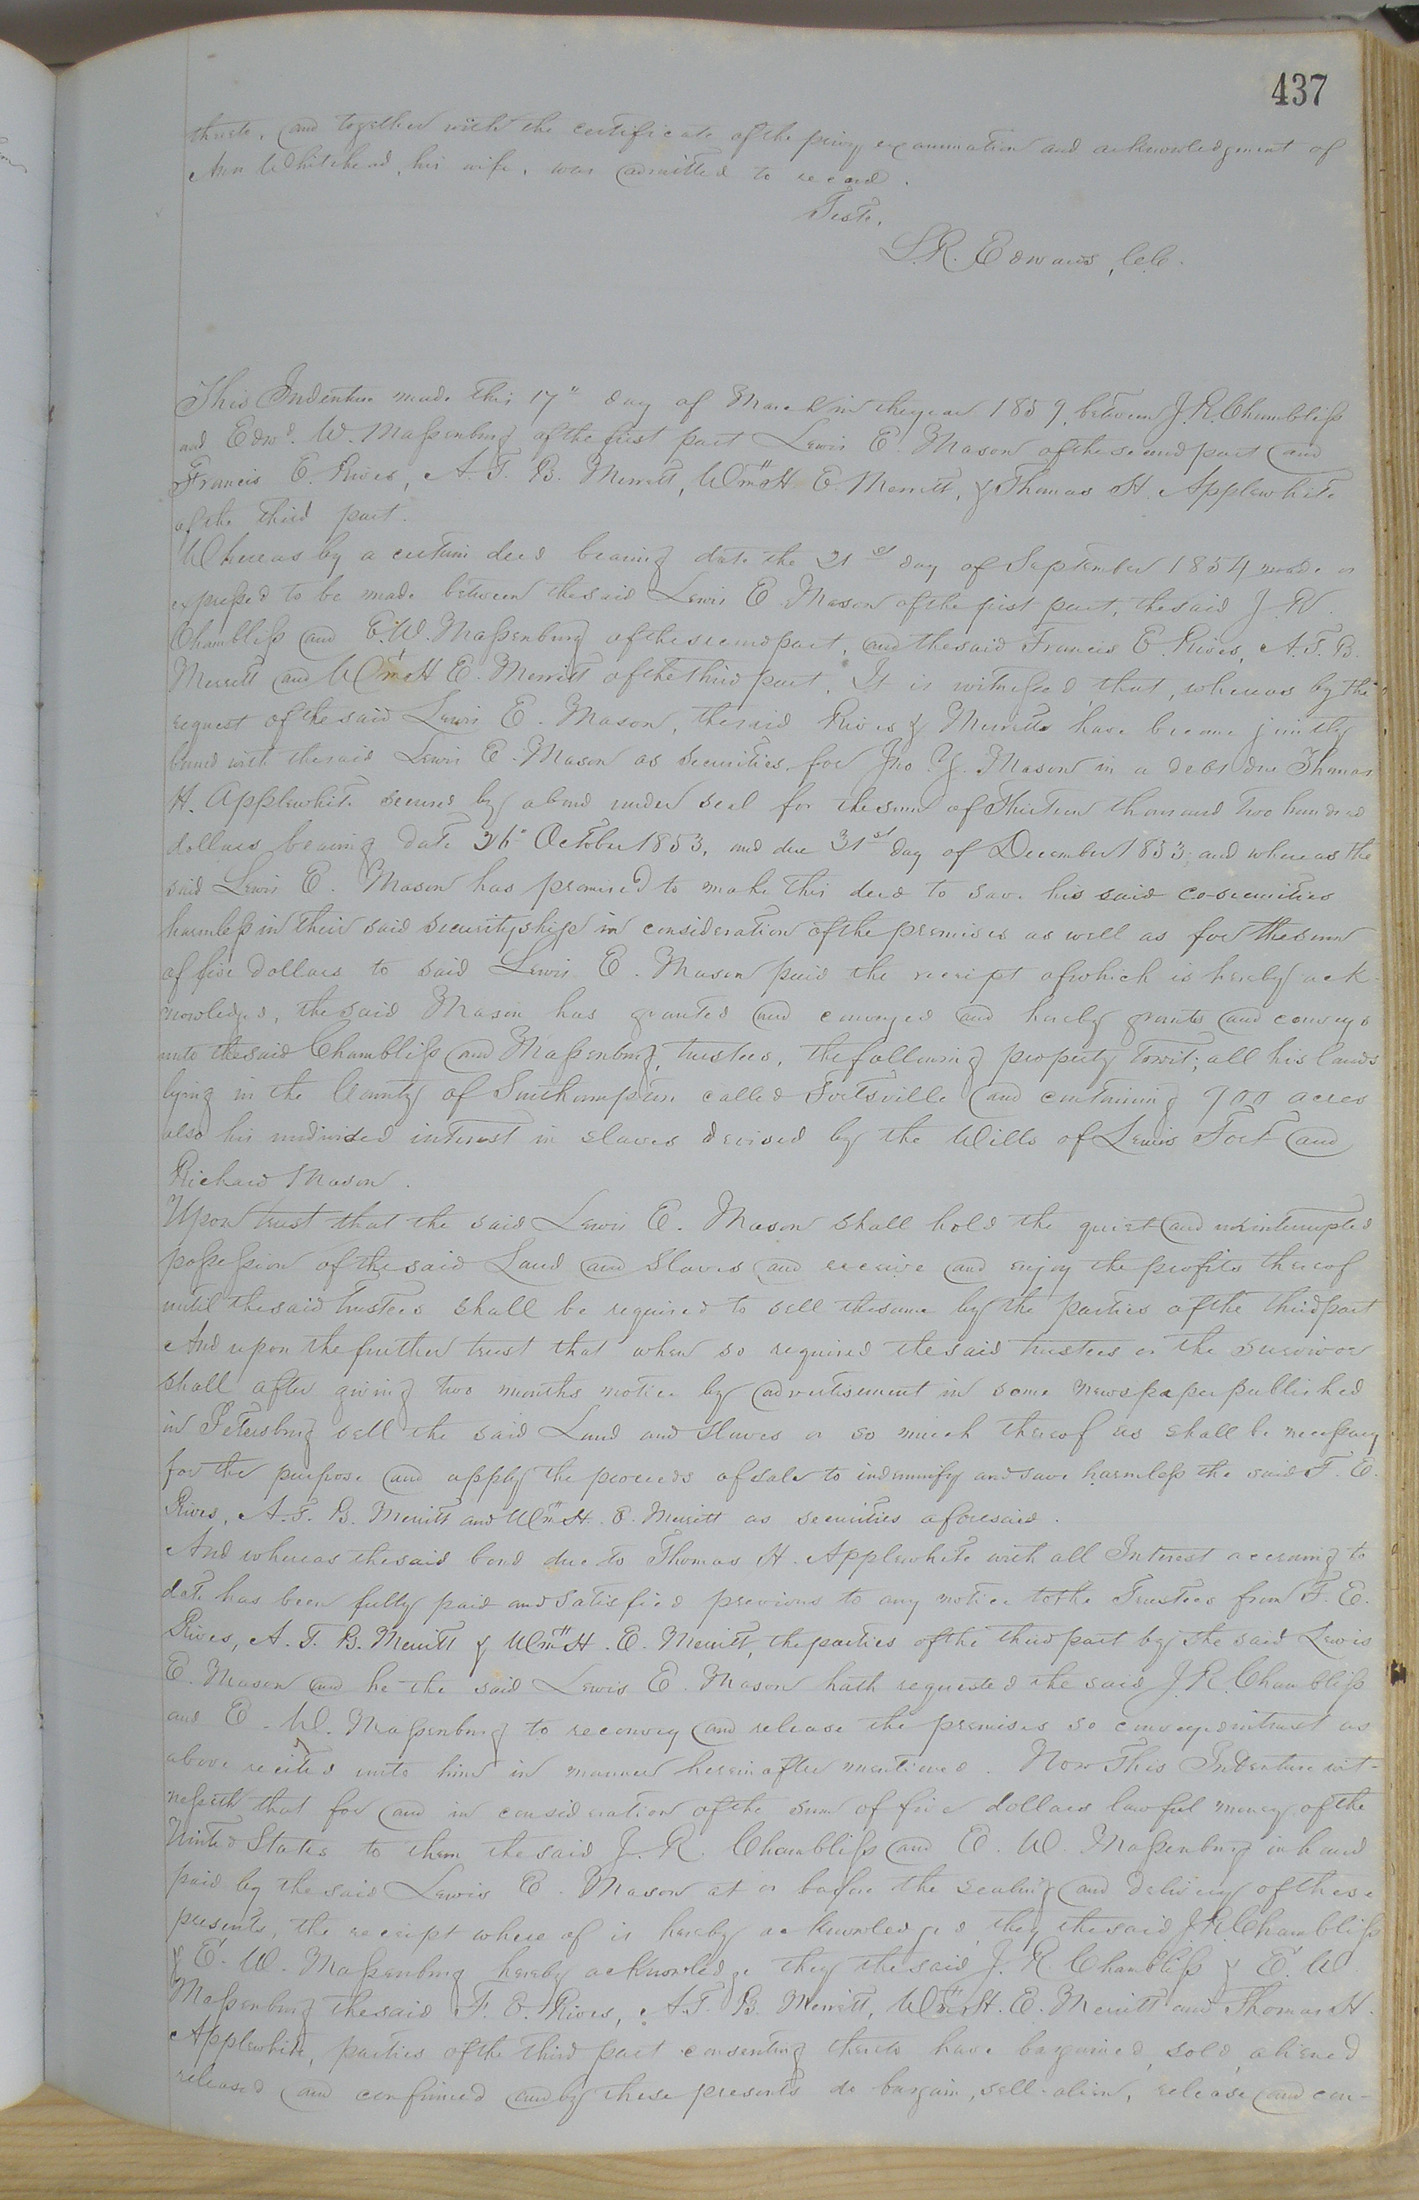 437
thereto, and together with the certificate of the privy examination and acknowledgment of
Ann Whitehead, his wife, was admitted to record.
Teste,
L.R. Edwards, C.C.
This Indenture made this 17" day of March in the year 1859, between J.R. Chambliss
and Edwd. W. Massenburg of the first part Lewis E. Mason of the second part and
Francis E. Rives, A.T.B. Merritt, Wm H. E. Merritt, & Thomas H. Applewhite
of the third part.
Whereas by a certain deed bearing date the 21st day of September 1854 made or
expressed to be made between the said Lewis E Mason of the first part, the said J.R.
Chambliss and E.W. Massenburg of the second part, and the said Francis E. Rives, A.T.B.
Merritt and Wm H E. Merritt of the third part. It is witnessed that, whereas by the
request of the said Lewis E. Mason, the said Rives & Merritts have become jointly
bound with the said Lewis E. Mason as securities for Jno. Y. Mason in a debt due Thomas
H. Applewhite secured by a bond under seal for the sum of Thirteen thousand two hundred
dollars bearing date 26" October 1853, and due 31st day of December 1853; and whereas the
said Lewis E. Mason has promised to make this deed to save his said co-securities
harmless in their said securityship in consideration of the premises as well as for the sum
of five dollars to said Lewis E. Mason paid the receipt of which is hereby ack-
nowledged, the said Mason has granted and conveyed and hereby grants and conveys
unto the said Chambliss and Massenburg, trustees, the following property towit; all his lands
lying in the County of Southampton called Fortsville and containing 900 acres
also his undivided interest in slaves devised by the Wills of Lewis Fort and
Richard Mason.
Upon trust that the said Lewis E. Mason shall hold the quiet and uninterrupted
possession of the said Land and Slaves and receive and enjoy the profits thereof
until the said trustees shall be required to sell the same by the parties of the third part
And upon the further trust that when so required the said trustees or the survivor
shall after giving two months notice by advertisement in some newspaper published
in Petersburg sell the said Land and slaves or so much thereof as shall be necessary
for the purpose and apply the proceeds of sale to indemnify and save harmless the said F. E.
Rives, A.T.B. Merritt and Wm H. E. Merritt as securities aforesaid.
And whereas the said bond due to Thomas H. Applewhite with all Interest accruing to
date has been fully paid and satisfied previous to any notice to the Trustees from F. E.
Rives, A.T.B. Merritt & Wm H. E. Merritt, the parties of the third part by the said Lewis
E. Mason and he the said Lewis E. Mason hath requested the said J.R. Chambliss
and E. W. Massenburg to reconvey and release the premises so conveyed in trust as
above recited unto him in manner hereinafter mentioned. Now This Indenture wit-
nesseth that for and in consideration of the sum of five dollars lawful money of the
United States to them the said J. R. Chambliss and E. W. Massenburg in hand
paid by the said Lewis E. Mason at or before the sealing and delivery of these
presents, the receipt where of is hereby acknowledged, they the said J.R. Chambliss
& E. W. Massenburg hereby acknowledge they the said J. R. Chambliss & E. W
Massenburg the said F. E. Rives, A.T. B. Merritt, Wm H. E. Merritt and Thomas H.
Applewhite, parties of the third part consenting thereto have bargained, sold, aliened
released and confirmed and by these presents do bargain, sell alien, release and con-